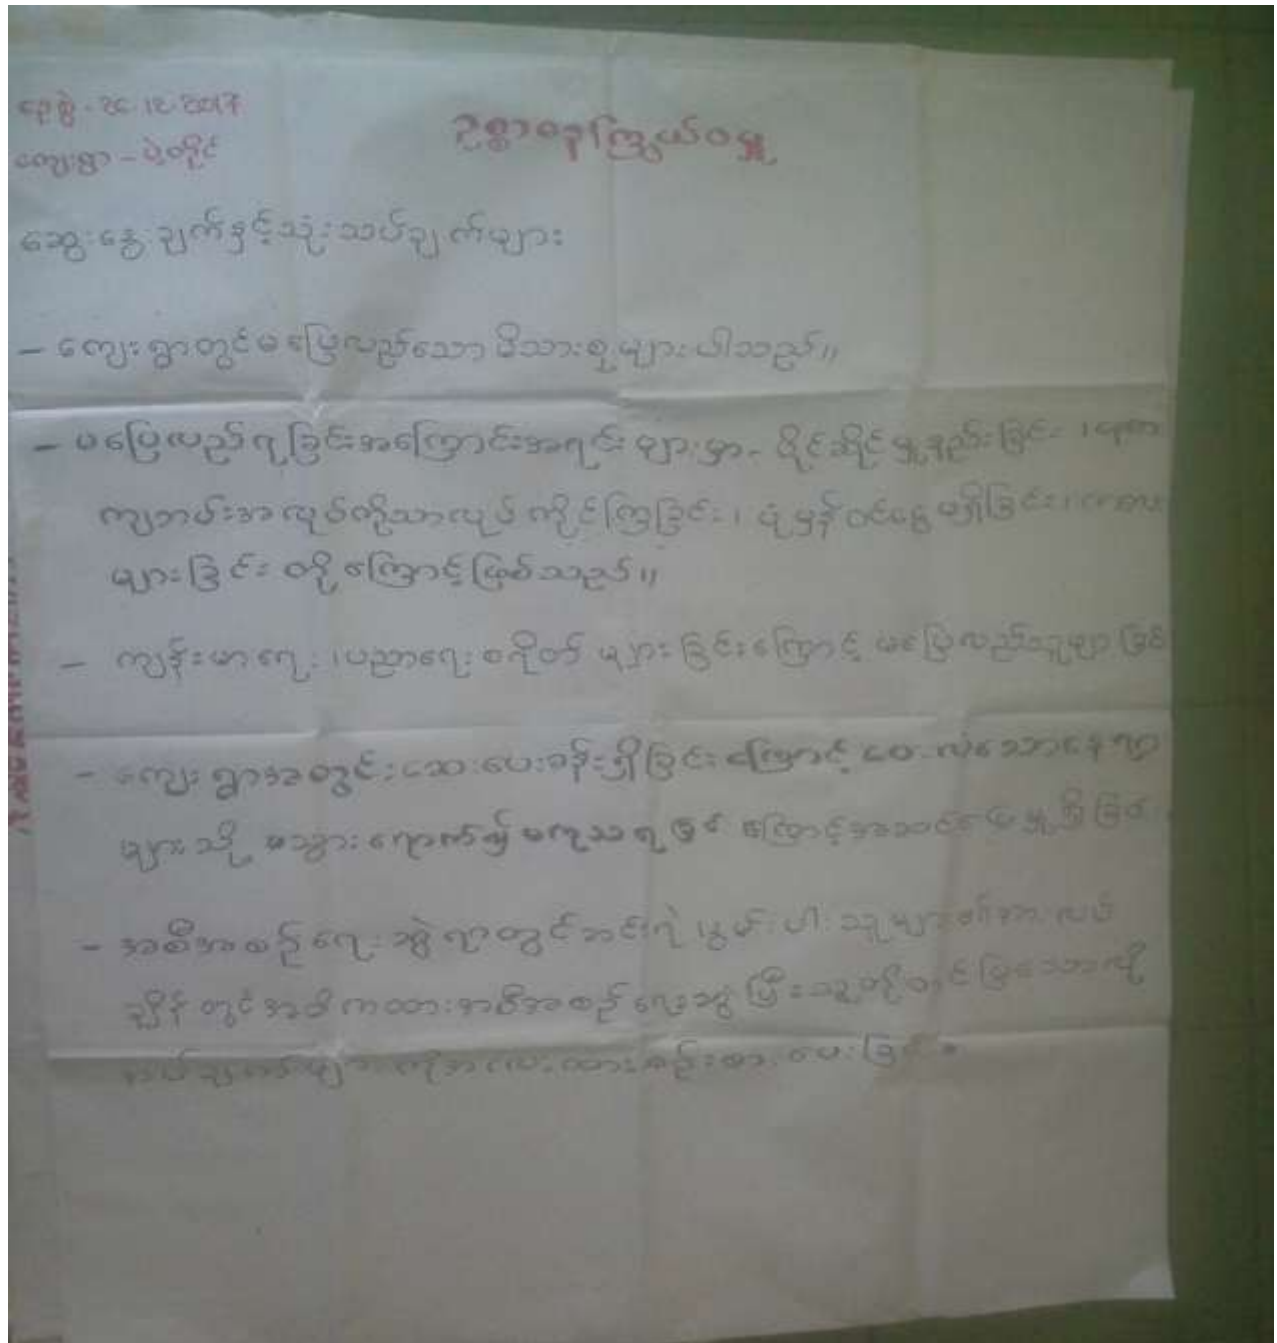 နေ့စွဲ - ၁၄.12.2017
ကျေးရွာ - ပဲ့တိုင်
ဥစ္စာဓနကြွယ်ဝမှု
ဆွေးနွေးချက်နှင့်သုံးသပ်ချက်များ
- ကျေးရွာတွင်မပြေလည်သောမိသားစုများပါသည်။
- မပြေလည်ရခြင်းအကြောင်းအရင်းများမှာ - ပိုင်ဆိုင်မှုနည်းခြင်း ၊
ကျဘမ်းအလုပ်ကိုသာလုပ်ကိုင်ကြခြင်း ၊ ပုံမှန်ဝင်ငွေမရှိခြင်း ၊
များခြင်းတို့ကြောင့်ဖြစ်သည်။
- ကျန်းမာရေး ၊ ပညာရေးစရိတ်များခြင်းကြောင့် မပြေလည်သူများဖြစ်
- ကျေးရွာအတွင်းဆေးပေးခန်းရှိခြင်းကြောင့် ဝေးလံသောနေရာ
များသို့ မသွားရောက်၍မကုသရခြင်းကြောင့်အဆင်ပြေမှုရှိခြင်း
- အစီအစဉ်ရေးဆွဲရာတွင်ဆင်းရဲနွမ်းပါးသူများ၏အားလပ်
ချိန်တွင်အဓိကထားအစီအစဉ်ရေးဆွဲပြီးသူတို့တင်ပြသောလို
အပ်ချက်များကိုအလေးထားစဉ်းစားပေးခြင်း။